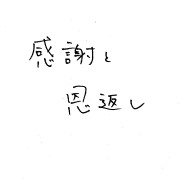 感謝と
恩返し